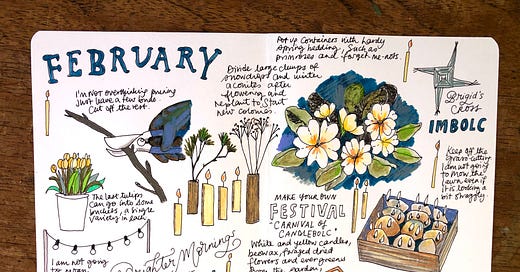 FEBRUARY
I'm not overthinking pruning
Just leave a few buds
Cut off the rest.
The last tulips
can go into
buckets, a single
variety in each
I am not going
Divide large clumps of
snowdrops and winter
aconites after
flowering and
replant to start
new colonies.
Brighter Mornings
Pot up containers with hardy
spring bedding, such as
primroses and forget-me-nots.
MAKE YOUR OWN
FESTIVAL
"CARNIVAL OF
CANDELBOLC"
White and yellow candles,
beeswax, foraged dried
flowers and evergreens
from the garden,
Brigid's
Cross
IMBOLC
Keep off the
grass cutting.
I am not going
to mow the
lawn even if
it is looking a
bit straggly